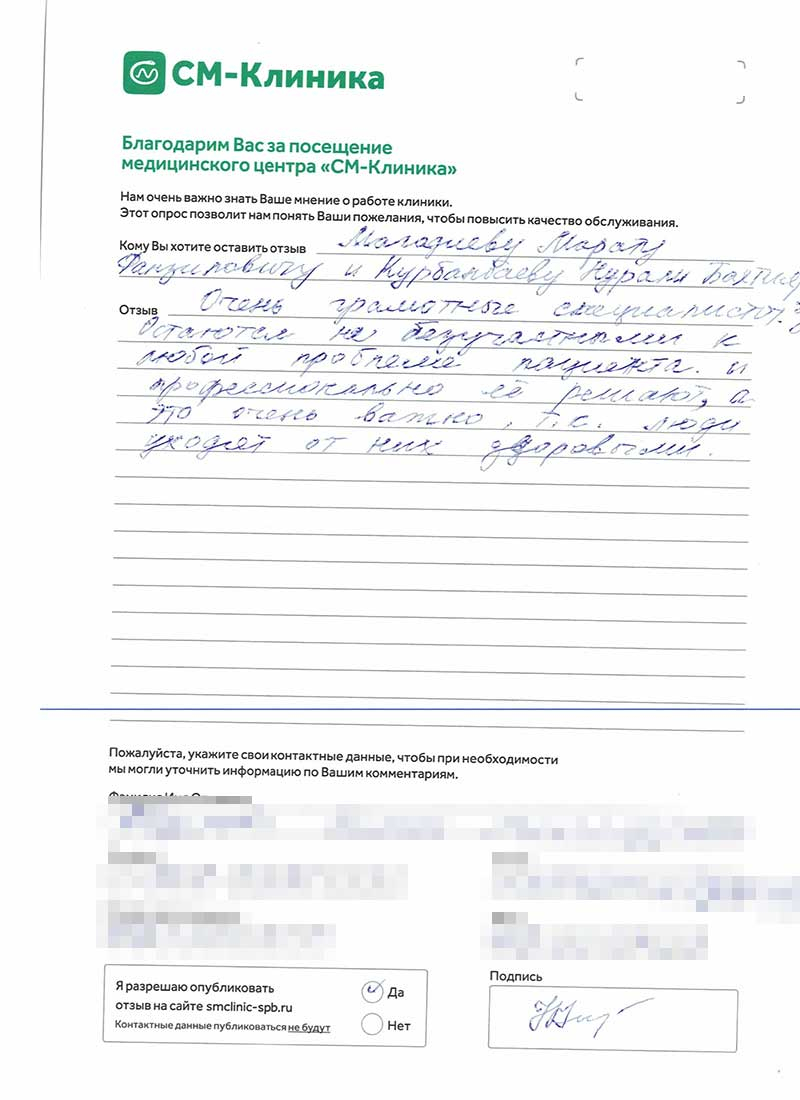 СМ-Клиника
Благодарим Вас за посещение
медицинского центра «СМ-Клиника»
Нам очень важно знать Ваше мнение о работе клиники.
Этот опрос позволит нам понять Ваши пожелания, чтобы повысить качество обслуживания.
Кому Вы хотите оставить отзыв Магадиеву Марату
и Курбанбаеву Нурали
Отзыв Очень грамотные специалисты.
Остаются не безучастными к
любой проблеме пациента. и
профессионально её решают, а
это очень важно, т.к. люди
уходят от них здоровыми.
Пожалуйста, укажите свои контактные данные, чтобы при необходимости
мы могли уточнить информацию по Вашим комментариям.
Я разрешаю опубликовать
отзыв на сайте smclinic-spb.ru
Контактные данные публиковаться не будут
Да
Нет
Подпись